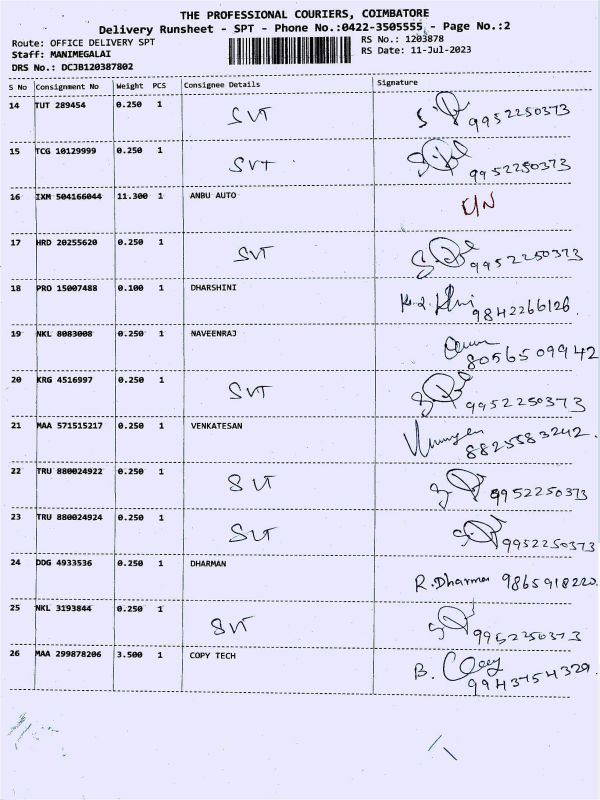 THE PROFESSIONAL COURIERS, COIMBATORE
Delivery Runsheet - SPT - Phone No.:0422-3505555 - Page No.:2
Route: OFFICE DELIVERY SPT RS No.: 1203878
Staff: MANIMEGALAI RS Date: 11-Jul-2023
DRS No.: DCJB120387802
S No Consignment No Weight PCS Consignee Details Signature
14 TUT 289454 0.250 1 SVT 9952250373
15 TCG 10129999 0.250 1 SVT 9952250373
16 IXM 504166044 11.300 1 ANBU AUTO
17 HRD 20255620 0.250 1 SVT 9952250373
18 PRO 15007488 0.100 1 DHARSHINI 9842266126.
19 NKL 8083008 0.250 1 NAVEENRAJ 8056509942
20 KRG 4516997 0.250 1 SVT 9952250373
21 MAA 571515217 0.250 1 VENKATESAN 8825583242.
22 TRU 880024922 0.250 1 SVT 9952250373
23 TRU 880024924 0.250 1 SVT 9952250373
24 DDG 4933536 0.250 1 DHARMAN R. Dharman 9865918220.
25 NKL 3193844 0.250 1 SVT 9952250373
26 MAA 299878206 3.500 1 COPY TECH B. 9943754329.